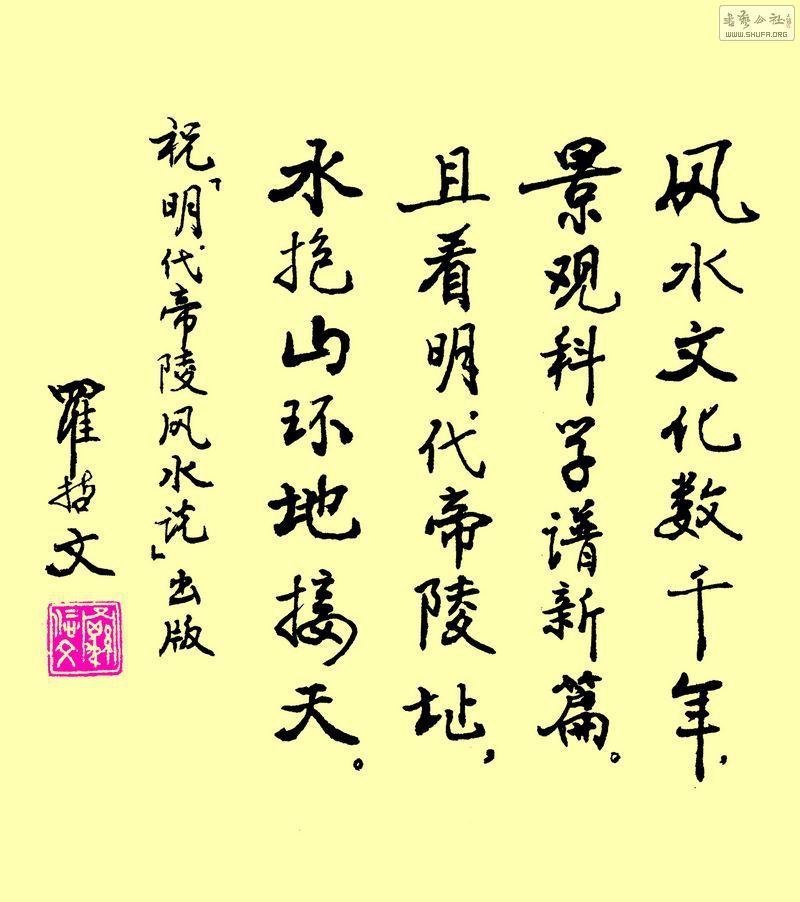 风水文化数千年，
景观科学谱新篇。
且看明代帝陵址，
水抱山环地接天。
祝「明代帝陵风水说」出版
罗哲文
书艺公社
WWW.SHUFA.ORG